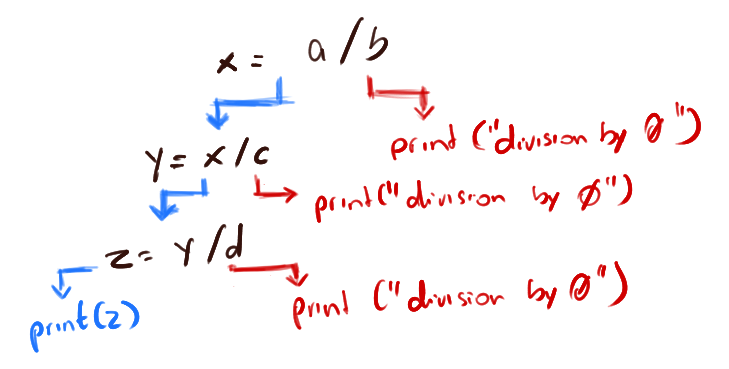 x = a / b
print ("division by 0")
y = x / c
print("division by 0")
z = y / d
print ("division by 0")
print(z)